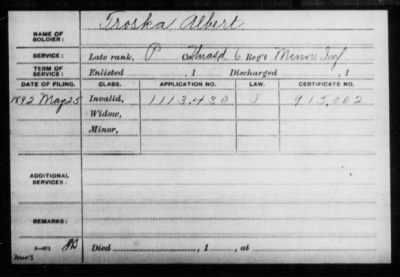 NAME OF SOLDIER: Troska Albert
SERVICE: Late rank, P Co. Unasd 6 Reg't Minn Inf
TERM OF SERVICE: Enlisted , 1 Discharged , 1
DATE OF FILING. CLASS. APPLICATION NO. LAW. CERTIFICATE NO.
1892 May 25 Invalid, 1113,430 915,002
Widow,
Minor,
ADDITIONAL SERVICES:
REMARKS:
Died , 1 , at